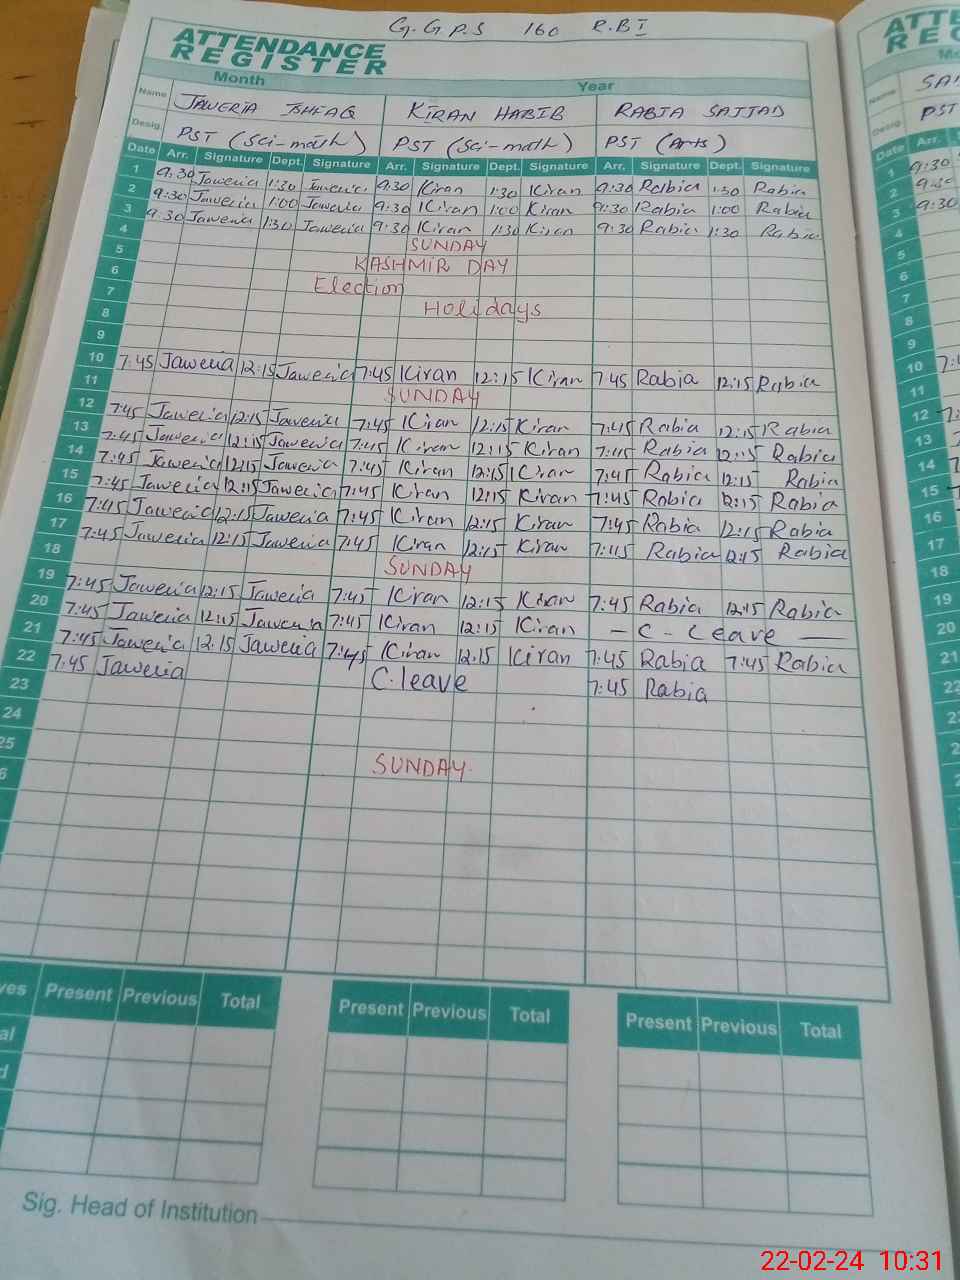 G.G.P.S 160 R.B I
ATTENDANCE
REGISTER
Month Year
Name JAWERIA ISHFAQ KIRAN HABIB RABIA SAJJAD
Desig. PST (Sci-math) PST (Sci-math) PST (Arts)
Date Arr. Signature Dept. Signature Arr. Signature Dept. Signature Arr. Signature Dept. Signature
1 9:30 Jaweria 1:30 Jaweria 9:30 Kiran 1:30 Kiran 9:30 Rabia 1:30 Rabia
2 9:30 Jaweria 1:00 Jaweria 9:30 Kiran 1:00 Kiran 9:30 Rabia 1:00 Rabia
3 9:30 Jaweria 1:30 Jaweria 9:30 Kiran 1:30 Kiran 9:30 Rabia 1:30 Rabia
4 SUNDAY
5 KASHMIR DAY
6 Election
7 Holidays
8
9
10 7:45 Jaweria 12:15 Jaweria 7:45 Kiran 12:15 Kiran 7:45 Rabia 12:15 Rabia
11 SUNDAY
12 7:45 Jaweria 12:15 Jaweria 7:45 Kiran 12:15 Kiran 7:45 Rabia 12:15 Rabia
13 7:45 Jaweria 12:15 Jaweria 7:45 Kiran 12:15 Kiran 7:45 Rabia 12:15 Rabia
14 7:45 Jaweria 12:15 Jaweria 7:45 Kiran 12:15 Kiran 7:45 Rabia 12:15 Rabia
15 7:45 Jaweria 12:15 Jaweria 7:45 Kiran 12:15 Kiran 7:45 Rabia 12:15 Rabia
16 7:45 Jaweria 12:15 Jaweria 7:45 Kiran 12:15 Kiran 7:45 Rabia 12:15 Rabia
17 7:45 Jaweria 12:15 Jaweria 7:45 Kiran 12:15 Kiran 7:45 Rabia 12:15 Rabia
18 SUNDAY
19 7:45 Jaweria 12:15 Jaweria 7:45 Kiran 12:15 Kiran 7:45 Rabia 12:15 Rabia
20 7:45 Jaweria 12:15 Jaweria 7:45 Kiran 12:15 Kiran - C - Leave -
21 7:45 Jaweria 12:15 Jaweria 7:45 Kiran 12:15 Kiran 7:45 Rabia 7:45 Rabia
22 7:45 Jaweria C.leave 7:45 Rabia
23
24
25 SUNDAY
Present Previous Total Present Previous Total Present Previous Total
Sig. Head of Institution
Name
Desig.
PST
Date Arr.
1 9:30
2 9:30
3 9:30
4
5
6
7
8
9
10
11
12
13
14
15
16
17
18
19
20
21
22-02-24 10:31